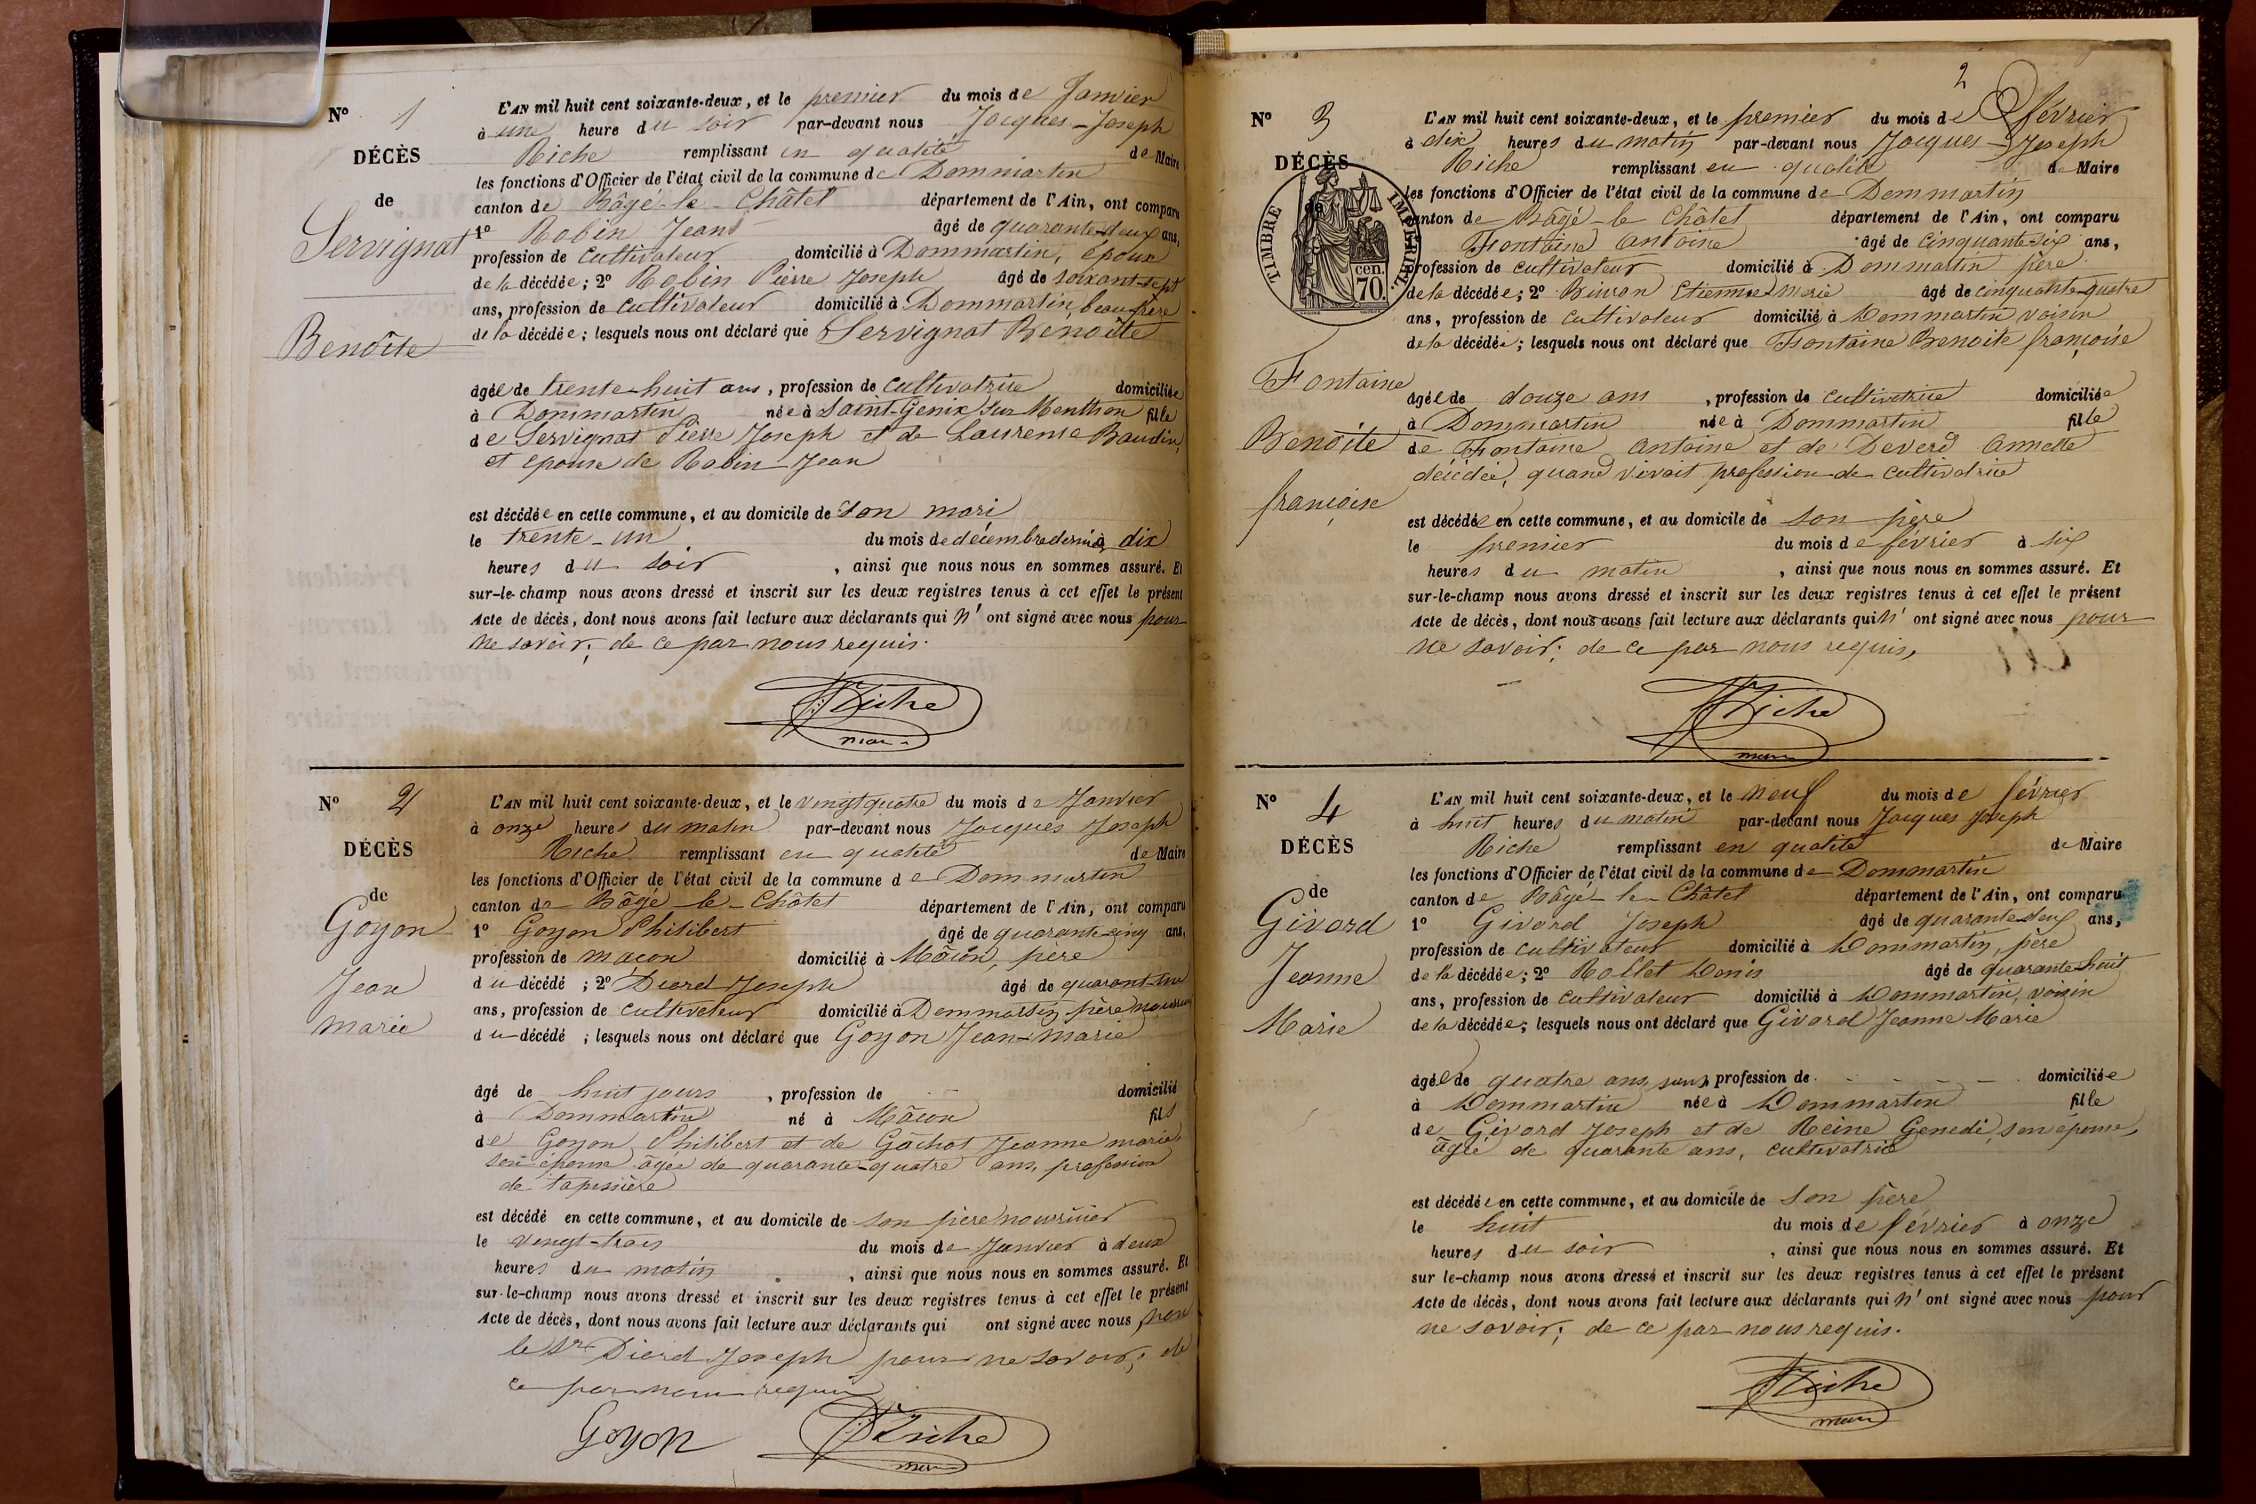 N° 1
DÉCÈS
de
Servignat
Benoîte
L'AN mil huit cent soixante-deux, et le premier du mois de Janvier
à une heure du soir par-devant nous Jacques-Joseph
Riche remplissant en qualité de Maire
les fonctions d'Officier de l'état civil de la commune de Dommartin
canton de Bâgé-le-Châtel département de l'Ain, ont comparu
1° Robin Jean âgé de quarante-deux ans,
profession de cultivateur domicilié à Dommartin, époux
de la décédée; 2° Robin Pierre Joseph âgé de soixant-sept
ans, profession de cultivateur domicilié à Dommartin, beau-frère
de la décédée; lesquels nous ont déclaré que Servignat Benoîte
âgée de trente-huit ans, profession de cultivatrice domiciliée
à Dommartin née à Saint-Genix sur Menthon fille
de Servignat Pierre Joseph et de Laurense Baudin,
et epouse de Robin Jean
est décédée en cette commune, et au domicile de son mari
le trente-un du mois de décembre dernier à dix
heures du soir, ainsi que nous nous en sommes assuré. Et
sur-le-champ nous avons dressé et inscrit sur les deux registres tenus à cet effet le présent
Acte de décès, dont nous avons fait lecture aux déclarants qui n'ont signé avec nous pour
ne savoir; de ce par nous requis.
Riche
maire
N° 2
DÉCÈS
de
Goyon
Jean
marie
L'AN mil huit cent soixante-deux, et le vingt quatre du mois de Janvier
à onze heures du matin par-devant nous Jacques Joseph
Riche remplissant en qualité de Maire
les fonctions d'Officier de l'état civil de la commune de Dommartin
canton de Bâgé-le-Châtel département de l'Ain, ont comparu
1° Goyon Philibert âgé de quarante-cinq ans,
profession de maçon domicilié à Mâcon, père
du décédé; 2° Diard Joseph âgé de quarant-un
ans, profession de cultivateur domicilié à Dommartin, père nourricier
du décédé; lesquels nous ont déclaré que Goyon Jean-marie
âgé de huit jours, profession de domicilié
à Dommartin né à Mâcon fils
de Goyon Philibert et de Gâchot Jeanne marie
son épouse âgée de quarante-quatre ans, profession
de tapissière
est décédé en cette commune, et au domicile de son père nourricier
le vingt-trois du mois de Janvier à deux
heures du matin, ainsi que nous nous en sommes assuré. Et
sur-le-champ nous avons dressé et inscrit sur les deux registres tenus à cet effet le présent
Acte de décès, dont nous avons fait lecture aux déclarants qui ont signé avec nous non
le Sr Diard Joseph pour ne savoir; de
ce par nous requis
Goyon Riche
maire
2
N° 3
DÉCÈS
de
TIMBRE IMPÉRIAL
cen.
70.
Fontaine
Benoîte
françoise
L'AN mil huit cent soixante-deux, et le premier du mois de février
à dix heures du matin par-devant nous Jacques-Joseph
Riche remplissant en qualité de Maire
les fonctions d'Officier de l'état civil de la commune de Dommartin
canton de Bâgé-le-Châtel département de l'Ain, ont comparu
Fontaine Antoine âgé de cinquante-six ans,
profession de cultivateur domicilié à Dommartin père
de la décédée; 2° Etienne Marie âgé de cinquante-quatre
ans, profession de cultivateur domicilié à Dommartin voisin
de la décédée; lesquels nous ont déclaré que Fontaine Benoite françoise
âgée de douze ans, profession de cultivatrice domiciliée
à Dommartin née à Dommartin fille
de Fontaine Antoine et de Annette
décédée, quand vivait profession de cultivatrice
est décédée en cette commune, et au domicile de son père
le premier du mois de février à six
heures du matin, ainsi que nous nous en sommes assuré. Et
sur-le-champ nous avons dressé et inscrit sur les deux registres tenus à cet effet le présent
Acte de décès, dont nous avons fait lecture aux déclarants qui n'ont signé avec nous pour
ne savoir; de ce par nous requis,
Riche
maire
N° 4
DÉCÈS
de
Givord
Jeanne
Marie
L'AN mil huit cent soixante-deux, et le neuf du mois de février
à huit heures du matin par-devant nous Jacques Joseph
Riche remplissant en qualité de Maire
les fonctions d'Officier de l'état civil de la commune de Dommartin
canton de Bâgé-le-Châtel département de l'Ain, ont comparu
1° Givord Joseph âgé de quarante-deux ans,
profession de cultivateur domicilié à Dommartin, père
de la décédée; 2° Rollet Denis âgé de quarante-huit
ans, profession de cultivateur domicilié à Dommartin, voisin
de la décédée; lesquels nous ont déclaré que Givord Jeanne Marie
âgée de quatre ans, sans profession de domiciliée
à Dommartin née à Dommartin fille
de Givord Joseph et de Reine Genedi, son épouse,
âgée de quarante ans, cultivatrice
est décédée en cette commune, et au domicile de son père
le huit du mois de février à onze
heures du soir, ainsi que nous nous en sommes assuré. Et
sur le-champ nous avons dressé et inscrit sur les deux registres tenus à cet effet le présent
Acte de décès, dont nous avons fait lecture aux déclarants qui n'ont signé avec nous pour
ne savoir; de ce par nous requis.
Riche
maire